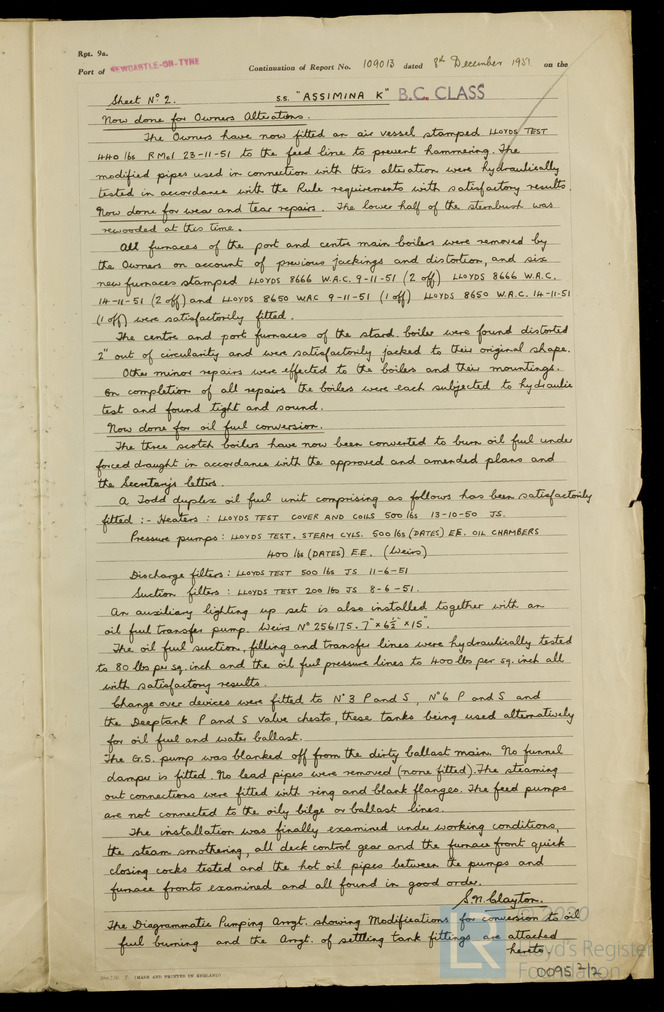 Rpt. 9a.
Port of NEWCASTLE-ON-TYNE Continuation of Report No. 109013 dated 8th December 1951 on the
Sheet No 2. S.S. "ASSIMINA K" B.C. CLASS
Now done for Owners Alterations.
The Owners have now fitted an air vessel stamped LLOYDS TEST
440 lbs R.McI 23-11-51 to the feed line to prevent hammering. The
modified pipes used in connection with this alteration were hydraulically
tested in accordance with the Rule requirements with satisfactory results.
Now done for wear and tear repairs. The lower half of the sternbush was
rewooded at this time.
All furnaces of the port and centre main boilers were removed by
the Owners on account of previous jackings and distortion, and six
new furnaces stamped LLOYDS 8666 W.A.C. 9-11-51 (2 off) LLOYDS 8666 W.A.C.
14-11-51 (2 off) and LLOYDS 8650 WAC 9-11-51 (1 off) LLOYDS 8650 W.A.C. 14-11-51
(1 off) were satisfactorily fitted.
The centre and port furnaces of the stard. boiler were found distorted
2" out of circularity and were satisfactorily jacked to their original shape.
Other minor repairs were effected to the boilers and their mountings.
On completion of all repairs the boilers were each subjected to hydraulic
test and found tight and sound.
Now done for oil fuel conversion.
The three scotch boilers have now been converted to burn oil fuel under
forced draught in accordance with the approved and amended plans and
the Secretary's letters.
A Todd duplex oil fuel unit comprising as follows has been satisfactorily
fitted :- Heaters : LLOYDS TEST COVER AND COILS 500 lbs 13-10-50 JS.
Pressure pumps : LLOYDS TEST. STEAM CYLS. 500 lbs (DATES) EE. OIL CHAMBERS
400 lbs (DATES) E.E. (Weirs)
Discharge filters : LLOYDS TEST 500 lbs JS 11-6-51
Suction filters : LLOYDS TEST 200 lbs JS 8-6-51.
An auxiliary lighting up set is also installed together with an
oil fuel transfer pump. Weirs No 256175. 7" x 6½" x 15".
The oil fuel suction, filling and transfer lines were hydraulically tested
to 80 lbs per sq. inch and the oil fuel pressure lines to 400 lbs per sq. inch all
with satisfactory results.
Change over devices were fitted to No 3 P and S, No 6 P and S and
the Deeptank P and S valve chests, these tanks being used alternatively
for oil fuel and water ballast.
The G.S. pump was blanked off from the dirty ballast main. No funnel
damper is fitted. No lead pipes were removed (none fitted). The steaming
out connections were fitted with ring and blank flanges. The feed pumps
are not connected to the oily bilge or ballast lines.
The installation was finally examined under working conditions,
the steam smothering, all deck control gear and the furnace front quick
closing cocks tested and the hot oil pipes between the pumps and
furnace fronts examined and all found in good order.
S.N. Clayton.
The Diagrammatic Pumping Arrgt. showing Modifications for conversion to oil
fuel burning and the Arrgt. of settling tank fittings are attached
hereto
© 2020
Lloyd's Register
Foundation
0095 2/2
(MADE AND PRINTED IN ENGLAND)